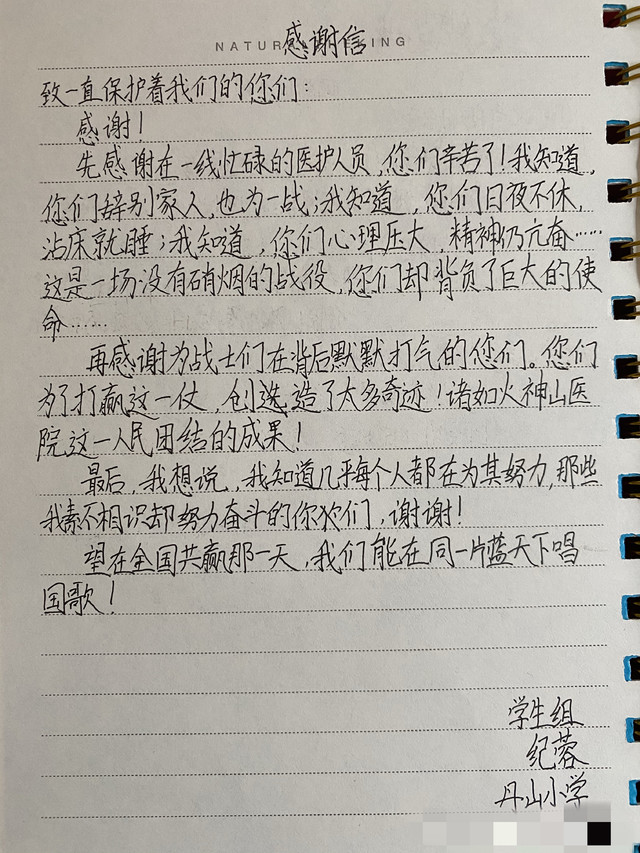 感谢信
NATUR ING
致一直保护着我们的你们：
感谢！
先感谢在一线忙碌的医护人员，您们辛苦了！我知道，
你们辞别家人，也为一战；我知道，您们日夜不休，
沾床就睡；我知道，你们心理压大，精神仍亢奋……
这是一场没有硝烟的战役，你们却背负了巨大的使
命……
再感谢为战士们在背后默默打气的您们。您们
为了打赢这一仗，创造了太多奇迹！诸如火神山医
院这一人民团结的成果！
最后，我想说，我知道几乎每个人都在为其努力，那些
我素不相识却努力奋斗的你们，谢谢！
望在全国共赢那一天，我们能在同一片蓝天下唱
国歌！
学生组
纪蓉
丹山小学